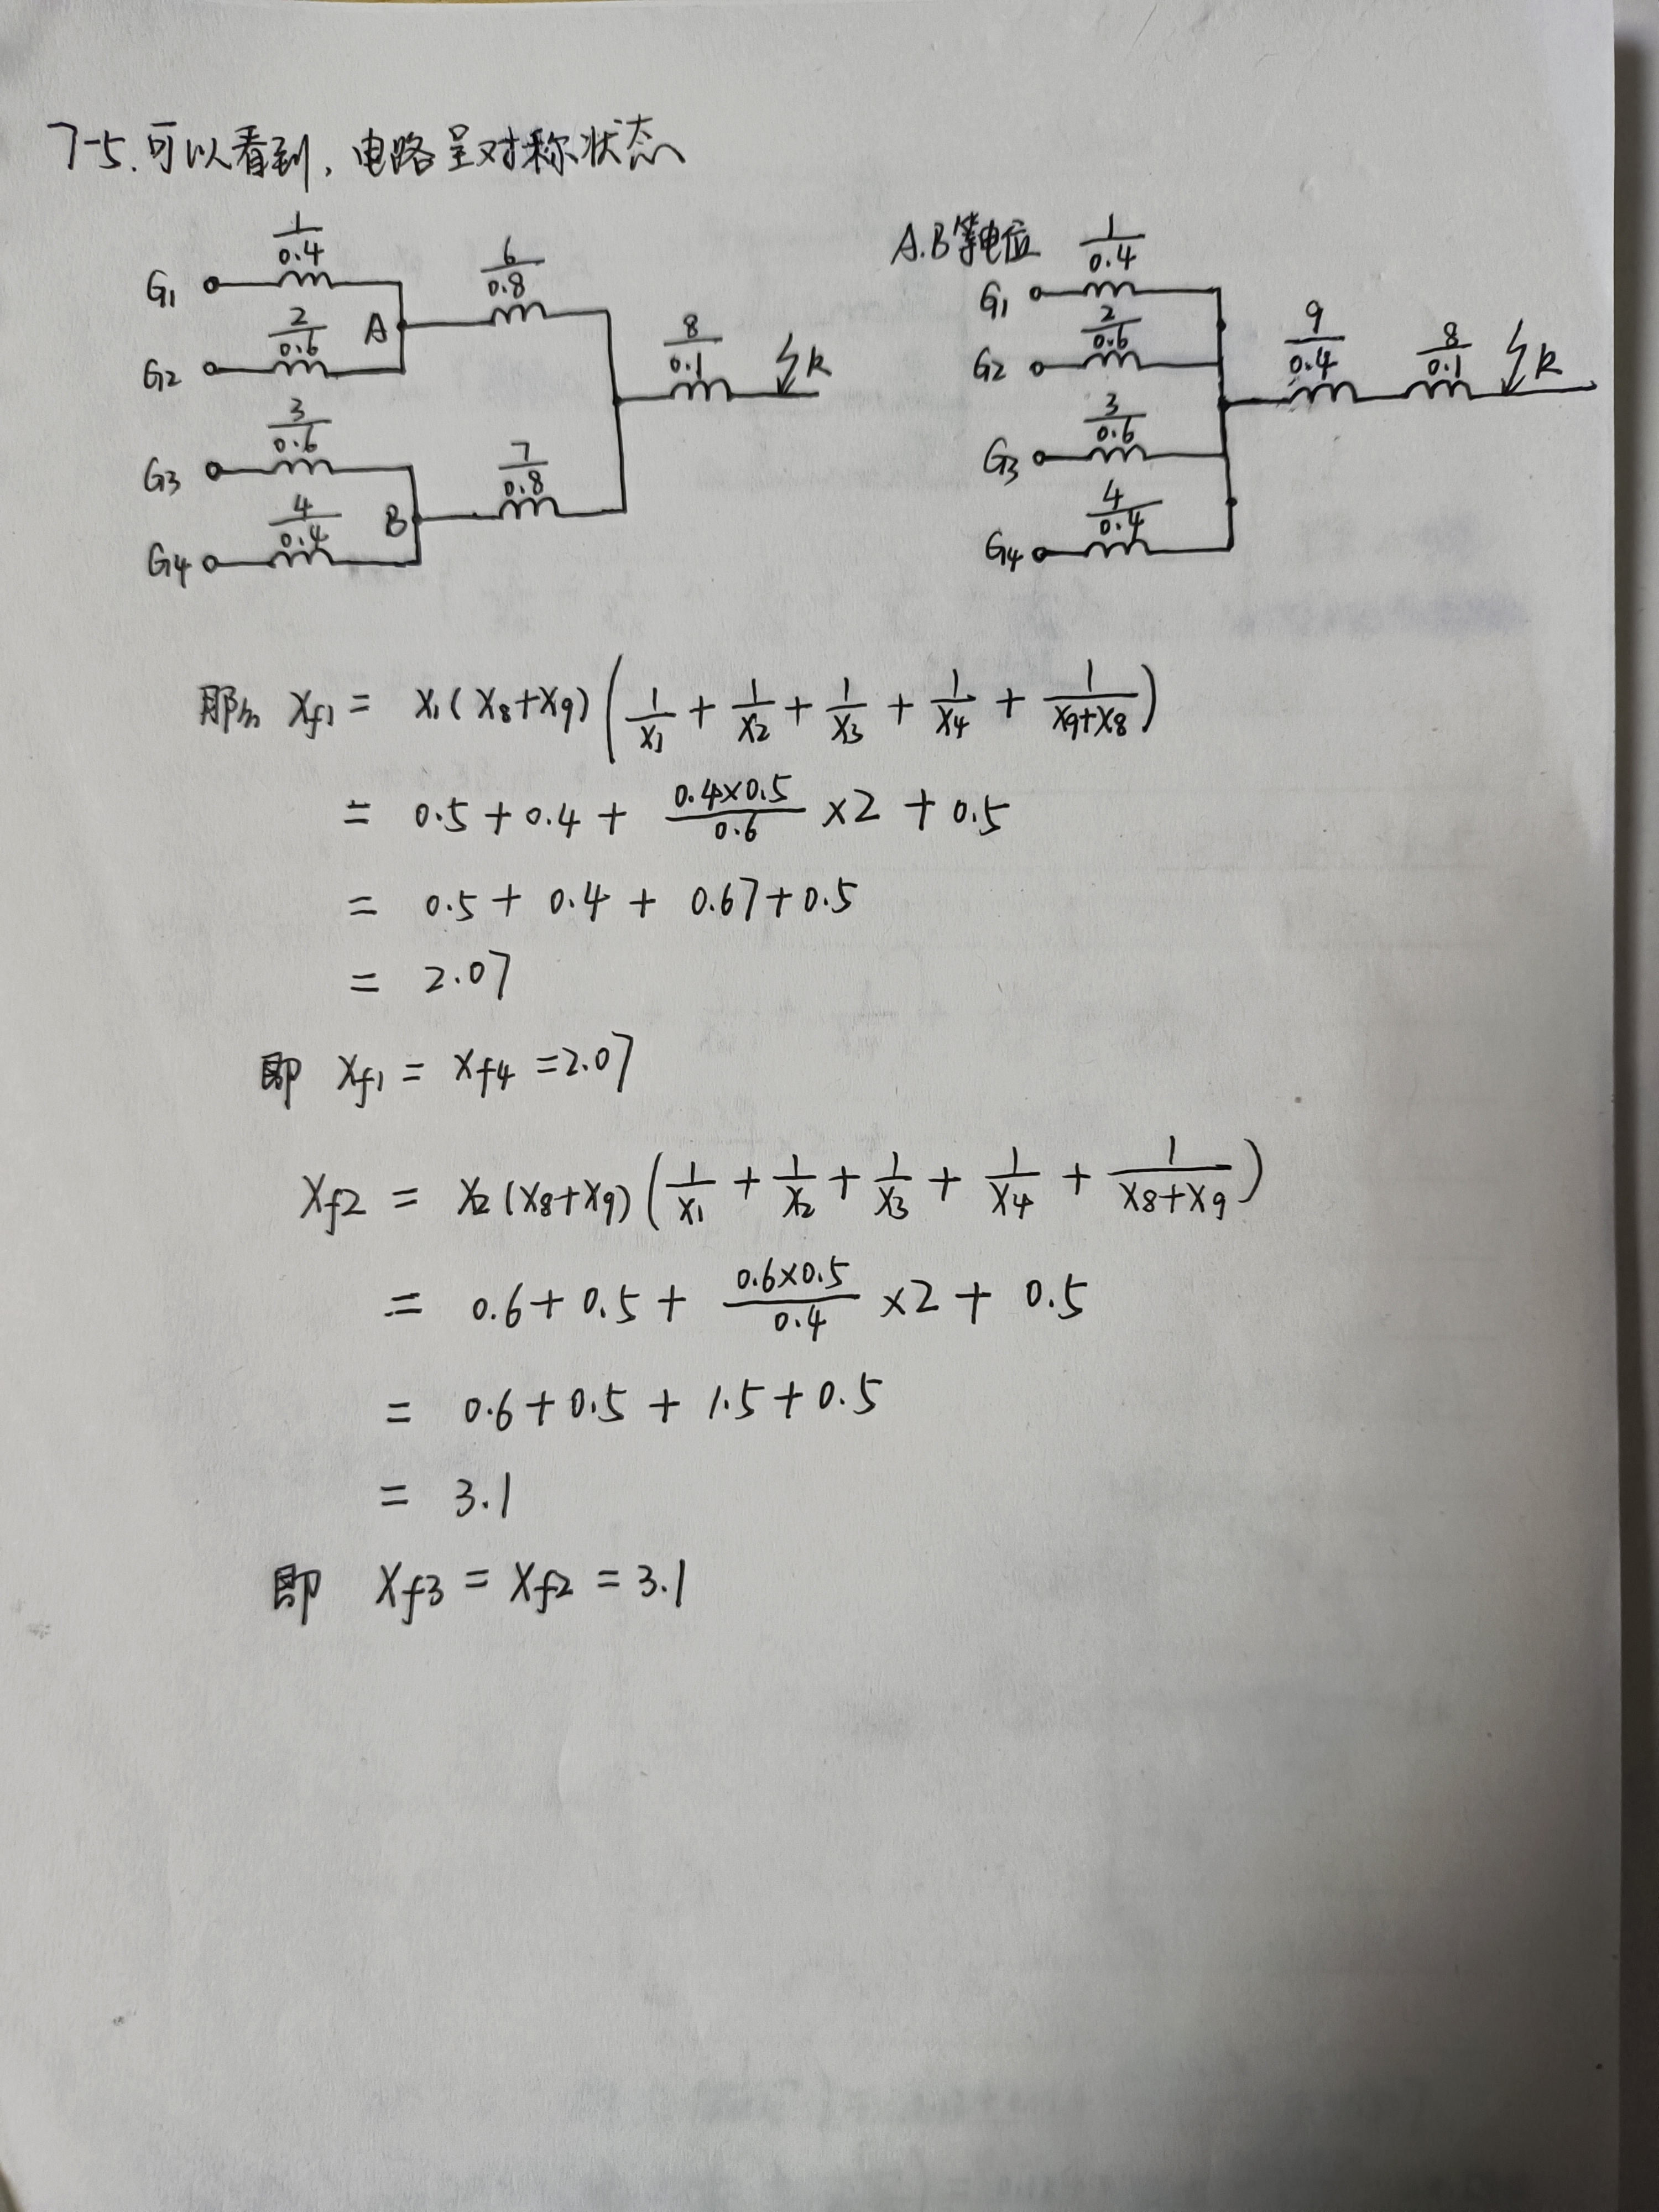 7-5.可以看到，电路呈对称状态
1/0.4
G1
2/0.6
G2
A
6/0.8
3/0.6
G3
4/0.4
G4
B
7/0.8
8/0.1
k
A.B等电位
1/0.4
G1
2/0.6
G2
3/0.6
G3
4/0.4
G4
9/0.4
8/0.1
k
那么 Xf1 = X1(X8+X9)(1/X1 + 1/X2 + 1/X3 + 1/X4 + 1/(X9+X8))
= 0.5 + 0.4 + (0.4×0.5)/0.6 ×2 + 0.5
= 0.5 + 0.4 + 0.67 + 0.5
= 2.07
即 Xf1 = Xf4 = 2.07
Xf2 = X2(X8+X9)(1/X1 + 1/X2 + 1/X3 + 1/X4 + 1/(X8+X9))
= 0.6 + 0.5 + (0.6×0.5)/0.4 ×2 + 0.5
= 0.6 + 0.5 + 1.5 + 0.5
= 3.1
即 Xf3 = Xf2 = 3.1